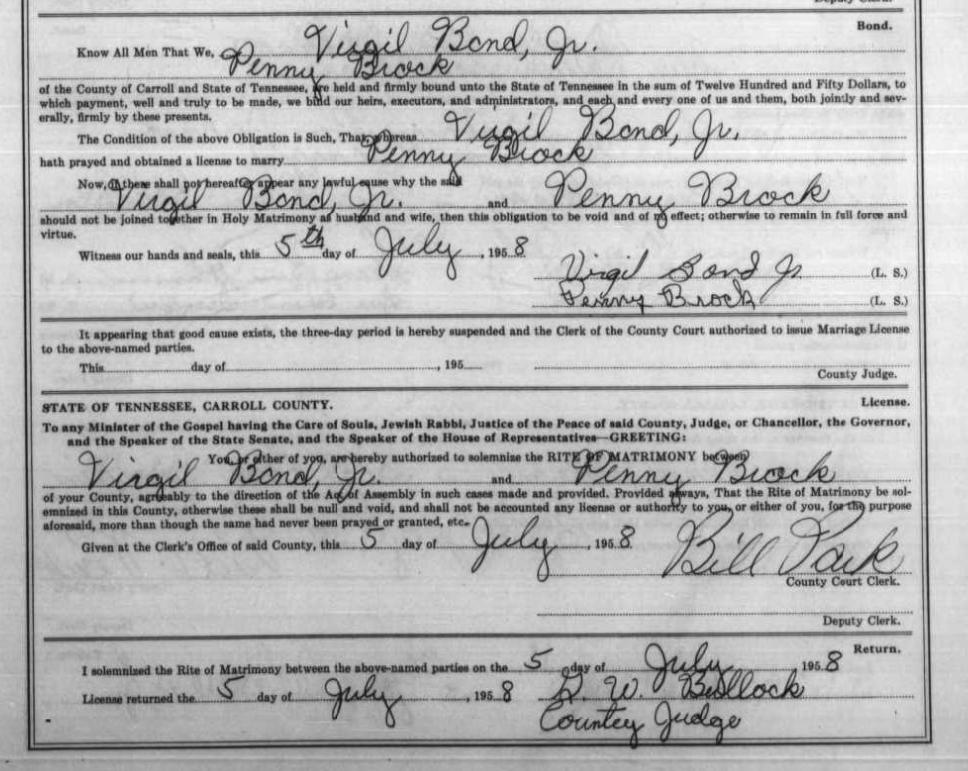 Deputy Clerk.
Bond.
Know All Men That We, Virgil Bond, Jr.
Penny Brock
of the County of Carroll and State of Tennessee, are held and firmly bound unto the State of Tennessee in the sum of Twelve Hundred and Fifty Dollars, to
which payment, well and truly to be made, we bind our heirs, executors, and administrators, and each and every one of us and them, both jointly and sev-
erally, firmly by these presents.
The Condition of the above Obligation is Such, That, whereas Virgil Bond, Jr.
hath prayed and obtained a license to marry Penny Brock
Now, if there shall not hereafter appear any lawful cause why the said
Virgil Bond, Jr. and Penny Brock
should not be joined together in Holy Matrimony as husband and wife, then this obligation to be void and of no effect; otherwise to remain in full force and
virtue.
Witness our hands and seals, this 5th day of July, 1958
Virgil Bond Jr (L. S.)
Penny Brock (L. S.)
It appearing that good cause exists, the three-day period is hereby suspended and the Clerk of the County Court authorized to issue Marriage License
to the above-named parties.
This day of , 195
County Judge.
STATE OF TENNESSEE, CARROLL COUNTY. License.
To any Minister of the Gospel having the Care of Souls, Jewish Rabbi, Justice of the Peace of said County, Judge, or Chancellor, the Governor,
and the Speaker of the State Senate, and the Speaker of the House of Representatives—GREETING:
You, or either of you, are hereby authorized to solemnize the RITE OF MATRIMONY between
Virgil Bond, Jr. and Penny Brock
of your County, agreeably to the direction of the Act of Assembly in such cases made and provided. Provided always, That the Rite of Matrimony be sol-
emnized in this County, otherwise these shall be null and void, and shall not be accounted any license or authority to you, or either of you, for the purpose
aforesaid, more than though the same had never been prayed or granted, etc.
Given at the Clerk's Office of said County, this 5 day of July, 1958 Bill Park
County Court Clerk.
Deputy Clerk.
Return.
I solemnized the Rite of Matrimony between the above-named parties on the 5 day of July 1958
License returned the 5 day of July, 1958 W. Bullock
Countey Judge